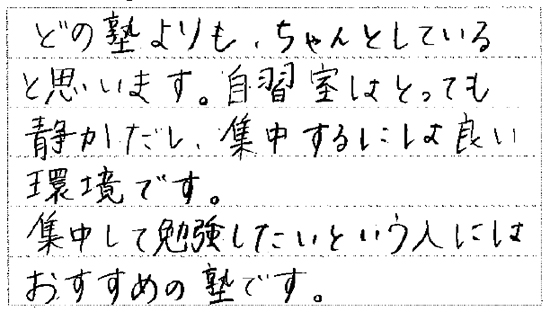 どの塾よりも、ちゃんとしている
と思います。自習室はとっても
静かだし、集中するには良い
環境です。
集中して勉強したいという人には
おすすめの塾です。